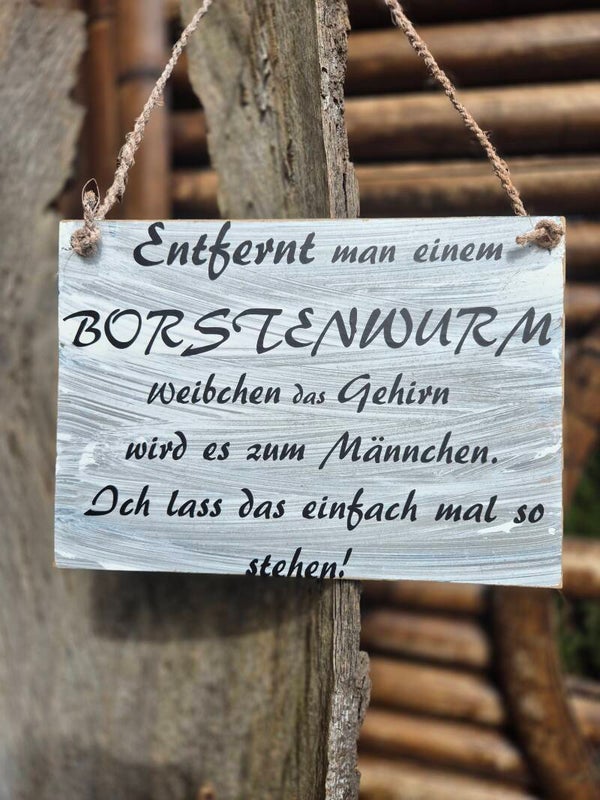 Entfernt man einem
BORSTENWURM
Weibchen das Gehirn
wird es zum Männchen.
Ich lass das einfach mal so
stehen!